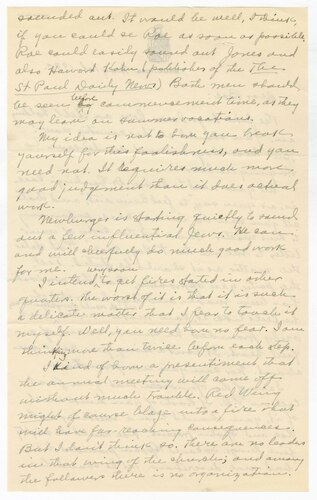 sounded out. It would be well, I think,
if you could se Roe as soon as possible.
Roe could easily sound out Jones and
also Howard Kahn (publisher of the The
St Paul Daily News) Both men should
be seen before commensement time, as they
may leave on summer vacations.
My idea is not to have you break
yourself for this foolishness, and you
need not. It requires much more
good judgement than it does actual
work.
Newburger is starting quietly to sound
out a few influential Jews. He can
and will cheerfully do much good work
for me.
I intend to get fires started in other
quarters very soon. The worst of it is that it is such
a delicate matter that I fear to touch it
myself. Well, you need have no fear. I am
thinking more than twice before each step.
I kind of have a presentiment that
the annual meeting will come off
without much trouble. Red Wing
might of course blaze into a fire that
will have far-reaching consequences.
But I don't think so. There are no leaders
in that wing of the church; and among
the followers there is no organization.